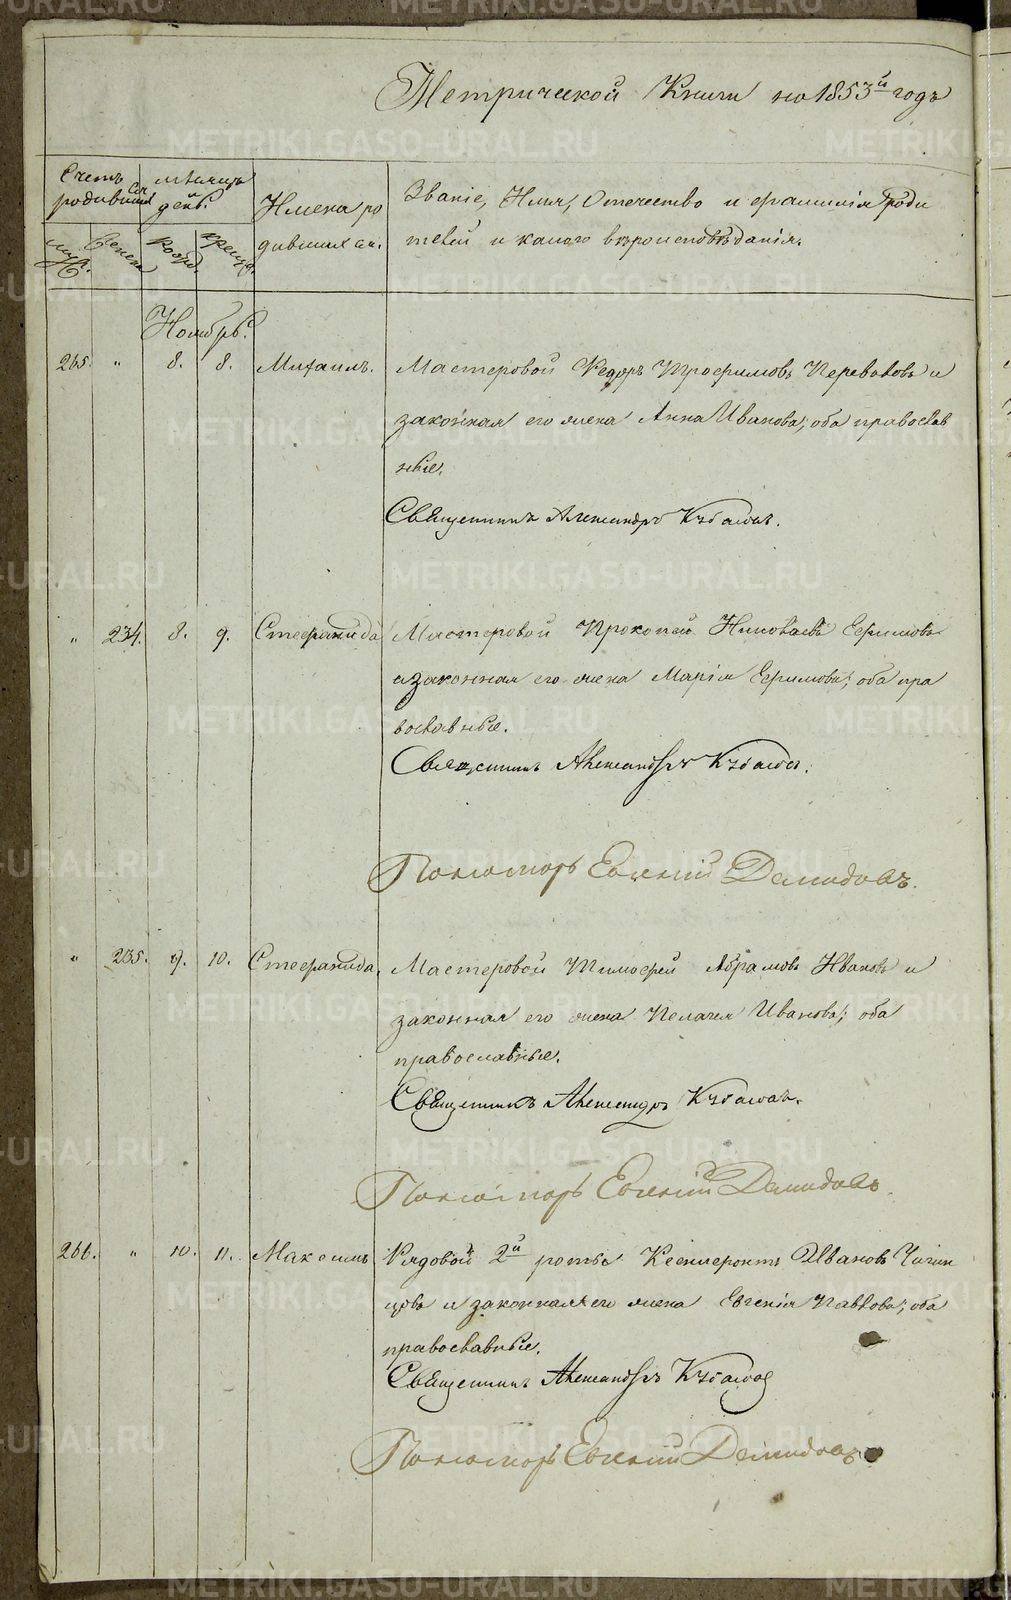 Метрической Книги на 1853й годъ
Счетъ родившихся
мѣсяцъ и день.
Имена родившихся.
Званіе, Имя, Отечество и фамилія роди
телей и какого вѣроисповѣданія.
муж. женск. рожд. крещ.
Ноябрь.
265. " 8. 8. Михаилъ. Мастеровой Ѳедоръ Трофимовъ Переваловъ и
законная его жена Анна Иванова; оба православ
ные.
Священникъ Александръ
" 234. 8. 9. Стефанида Мастеровой Прокопей Николаевъ Ефимовъ
и законная его жена Марія Ефимова; оба пра
вославные.
Священникъ Александръ
Пономарь Евгений Демидовъ.
" 235. 9. 10. Стефанида. Мастеровой Тимофей Абрамовъ Ивановъ и
законная его жена Пелагея Иванова; оба
православные.
Священникъ Александръ
Пономарь Евгений Демидовъ.
266. " 10. 11. Максимъ Рядовой 2й роты Ксенофонтъ Ивановъ
и законная его жена Евгенія Павлова; оба
православные.
Священникъ Александръ
Пономарь Евгений Демидовъ
METRIKI.GASO-URAL.RU